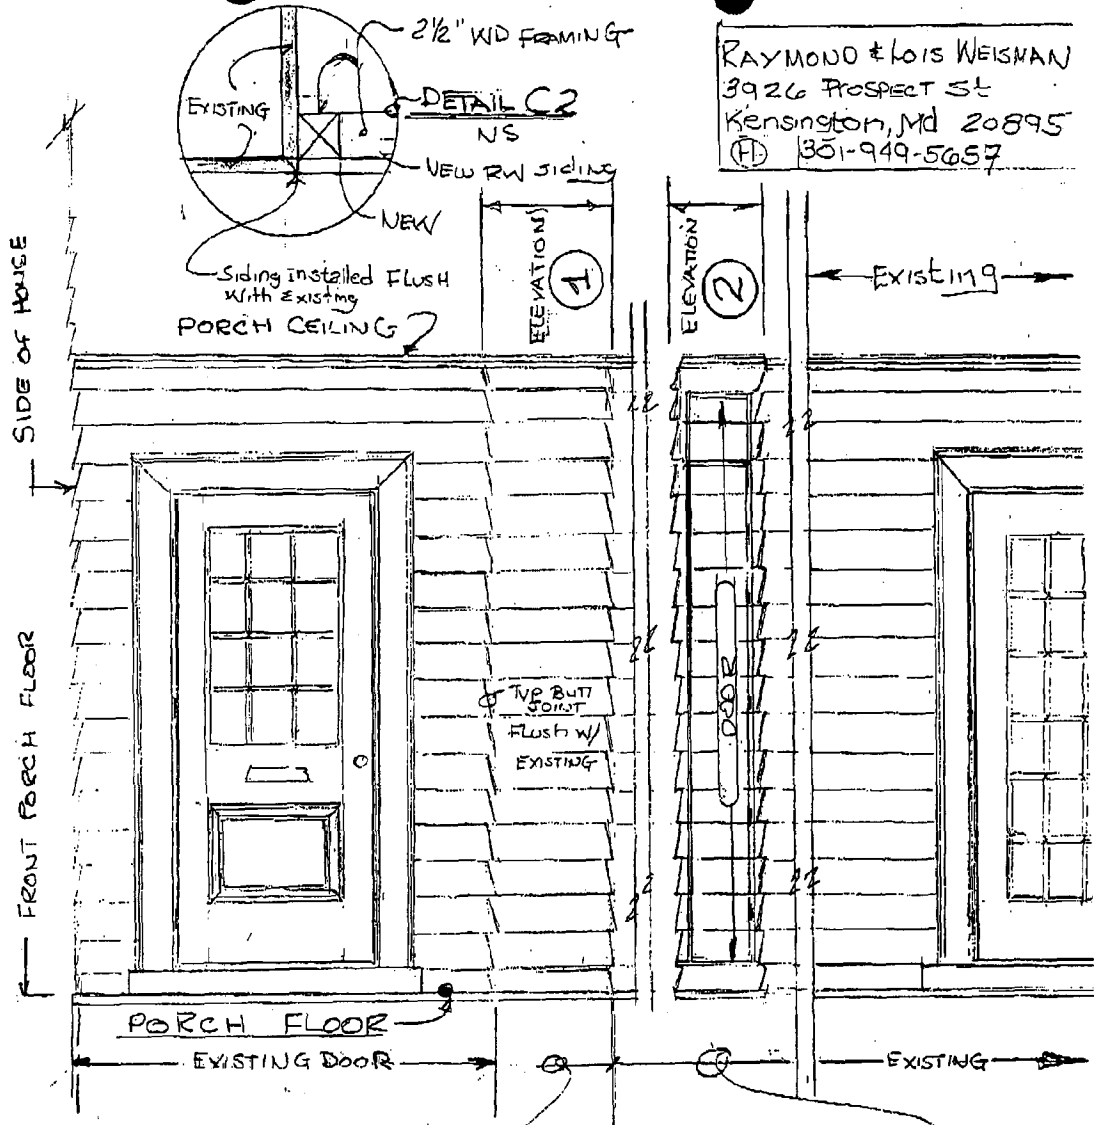 2½" WD FRAMING
EXISTING
DETAIL C2
NS
NEW RW SIDING
NEW
Siding installed FLUSH
With Existing
PORCH CEILING
RAYMOND & LOIS WEISMAN
3926 PROSPECT St
Kensington, Md 20895
(H) 301-949-5657
ELEVATION
1
ELEVATION
2
Existing
SIDE OF HOUSE
FRONT PORCH FLOOR
TYP BUTT
JOINT
FLUSH W/
EXISTING
DOOR
PORCH FLOOR
EXISTING DOOR
EXISTING